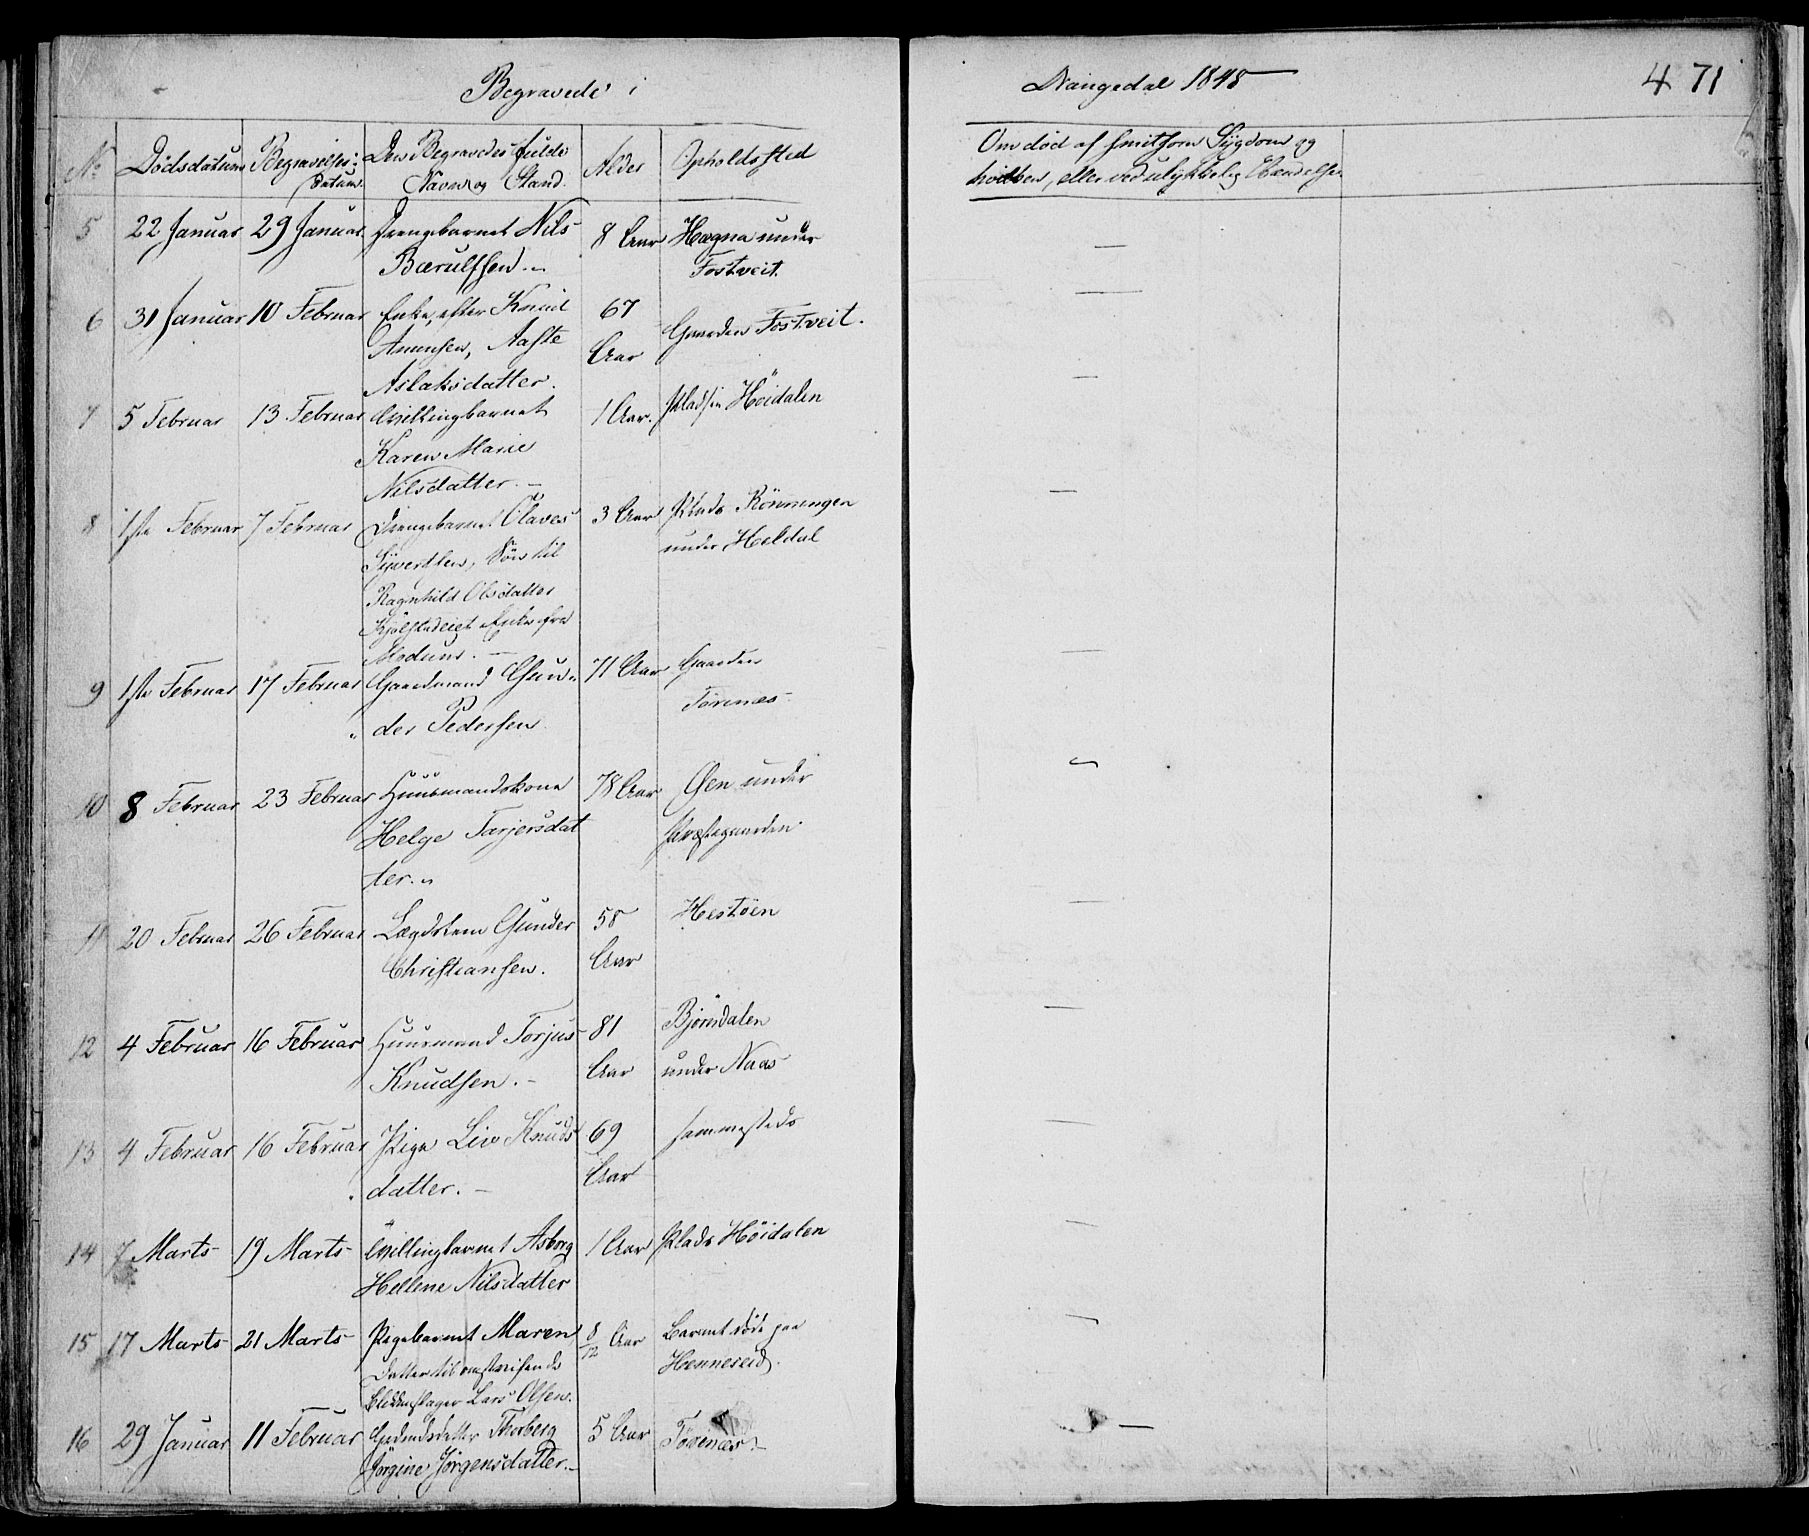 Begravede i
Drangedal 1848
471
No Dødsdatum Begravelses- Datum Den Begravedes fulde Navn og Stand. Alder Opholdssted
Om død af smitsom Sygdom og
hvilken, eller ved ulykkelig Hændelse
5 22 Januar 29 Januar Drengbarnet Nils 8 Aar Hægna under
Bærulfsen. Fostveit.
6 31 Januar 10 Februar Enke, efter Knud 67
Amunsen, Aaste Aar Gaarden Fostveit.
Aslaksdatter.
7 5 Februar 13 Februar Tvillingbarnet 1 Aar. Pladsen Höidalen
Karen Marie
Nilsdatter. —
8 1ste Februar 7 Februar Drengebarnet Olaves 3 Aar Plads Rönningen
Syvertsen, Sön til under Heldal
Ragnhild Olsdatter
Enke fra
Modum. —
9 1ste Februar 17 Februar Gaardmand Gun- 71 Aar Gaarden
der Pedersen. Törenæs
10 8 Februar 23 Februar Huusmandskone 78 Aar Øen under
Helge Tarjersdat Præstegaarden.
ter.
11 20 Februar 26 Februar Lægdslem Gunder 58 Hestöen
Christiansen. Aar
12 4 Februar 16 Februar Huusmand Torjus 81 Björndalen
Knudsen. — Aar under Naas
13 4 Februar 16 Februar Pige Liv Knuds 69 sammesteds
datter. — Aar
14 7 Marts 19 Marts Tvillingbarnet Asborg 1 Aar Plads Höidalen
Hellene Nilsdatter
15 17 Marts 21 Marts Pigebarnet Maren 8/12 Aar Barnet döde paa
Datter til omstreifende Henneseid.
Blikkenslager Lars Olsen.
16 29 Januar 11 Februar Thorberg 5 Aar Törenæs
Jörgine Jörgensdatter. —